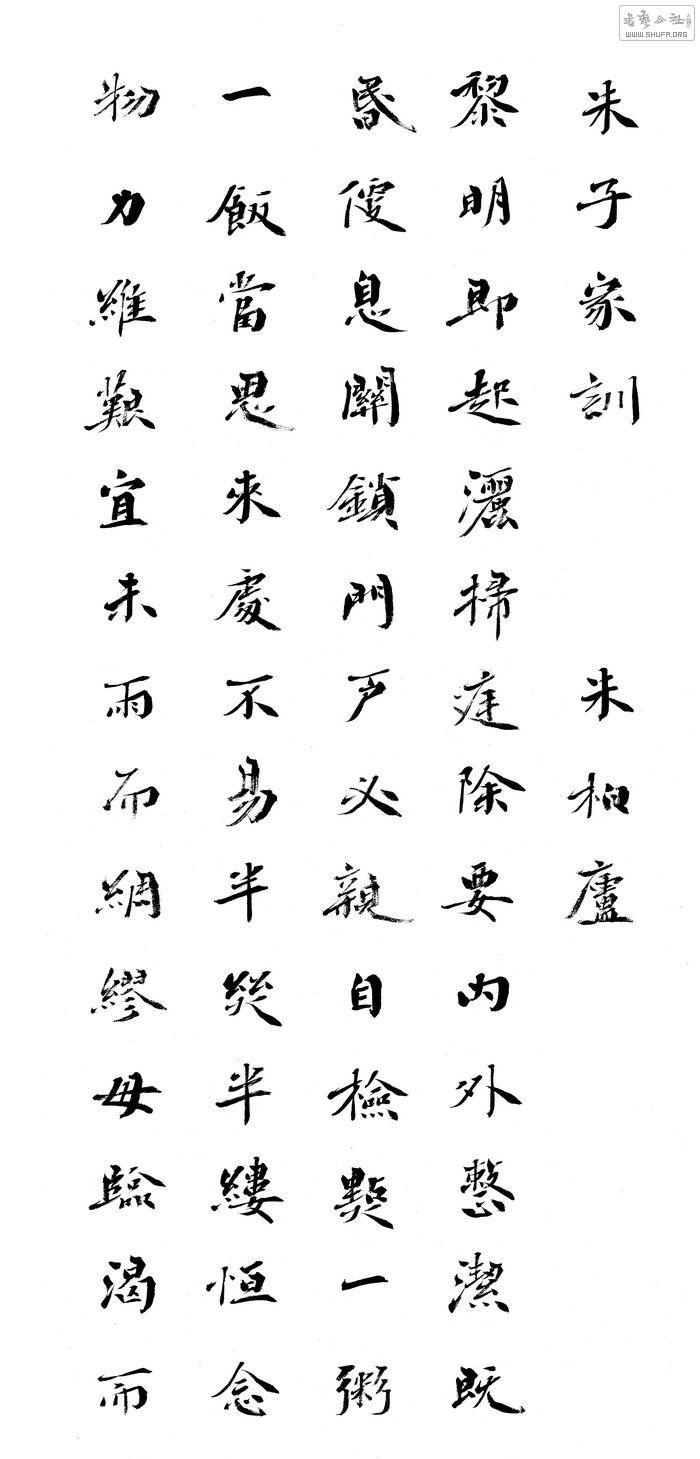 朱子家訓 朱柏廬
黎明即起灑掃庭除要內外整潔既
昏便息關鎖門戶必親自檢點一粥
一飯當思來處不易半絲半縷恒念
物力維艱宜未雨而綢繆毋臨渴而
書藝公社
WWW.SHUFA.ORG